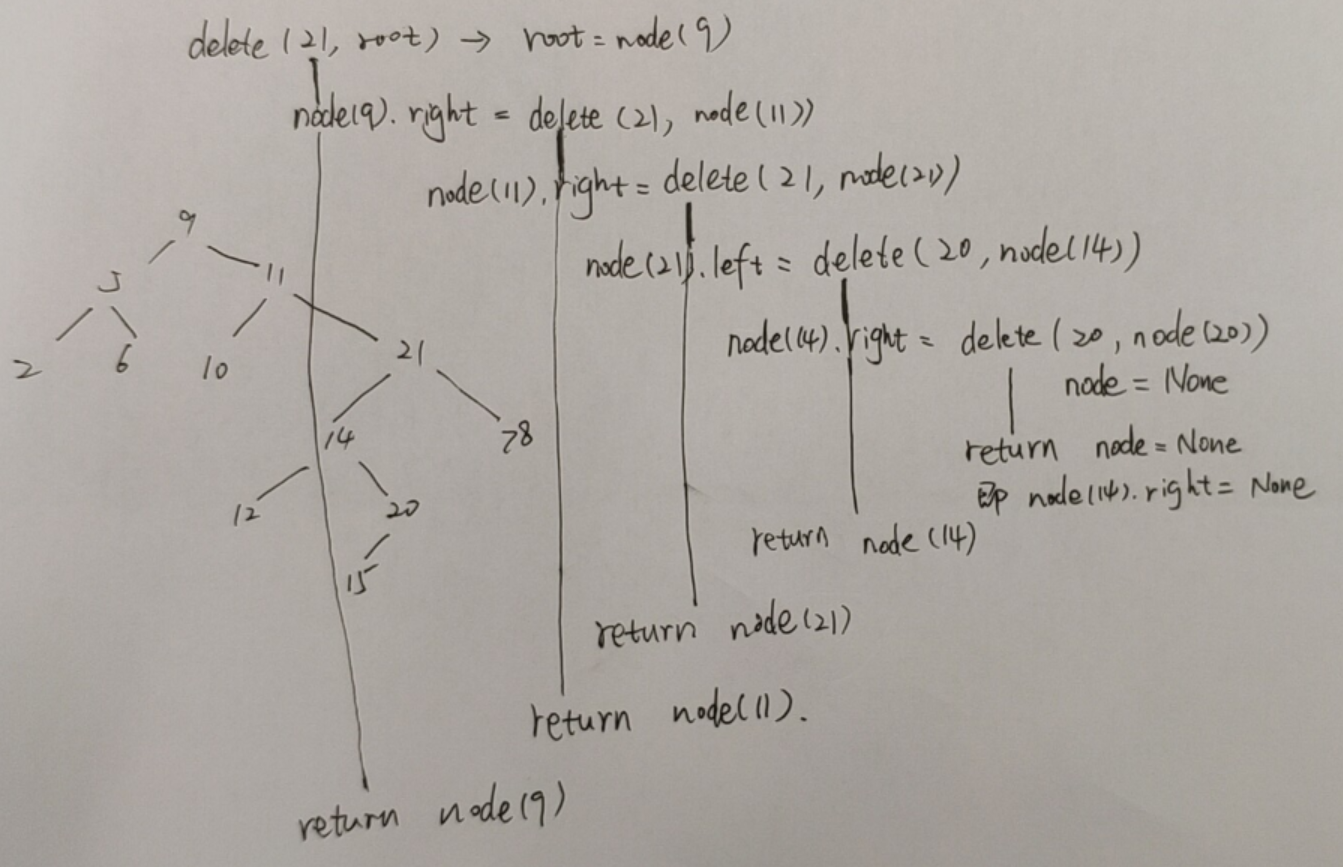 delete (21, root) → root = node(9)
node(9). right = delete (21, node(11))
node(11). right = delete (21, node(21))
node(21).left = delete (20, node(14))
node(14). right = delete (20, node(20))
node = None
return node = None
即 node(14). right = None
return node (14)
return node(21)
return node(11).
return node(9)
9
5 11
2 6 10 21
14 78
12 20
15